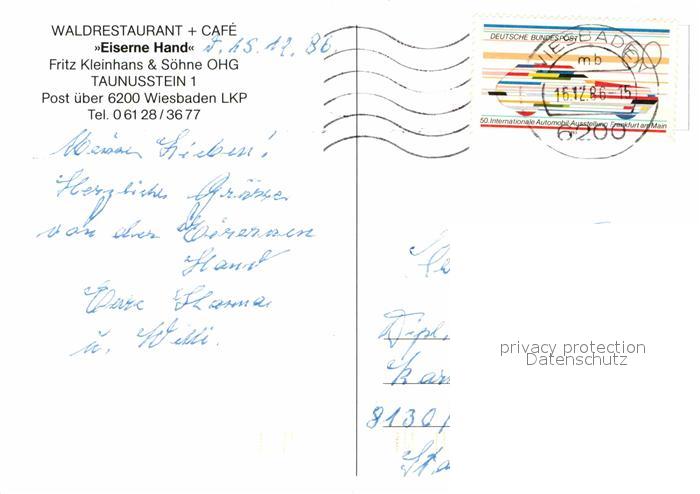 WALDRESTAURANT + CAFÉ
»Eiserne Hand« d. 15.12.86.
Fritz Kleinhans & Söhne OHG
TAUNUSSTEIN 1
Post über 6200 Wiesbaden LKP
Tel. 0 61 28 / 36 77
Meine Lieben!
Herzliche Grüsse
von der Eisernen
Hand
Eure
u. Willi.
DEUTSCHE BUNDESPOST
50. Internationale Automobil-Ausstellung Frankfurt am Main
WIESBADEN
mb
16.12.86-15
6200
Dipl.
8130/
Sta
privacy protection
Datenschutz